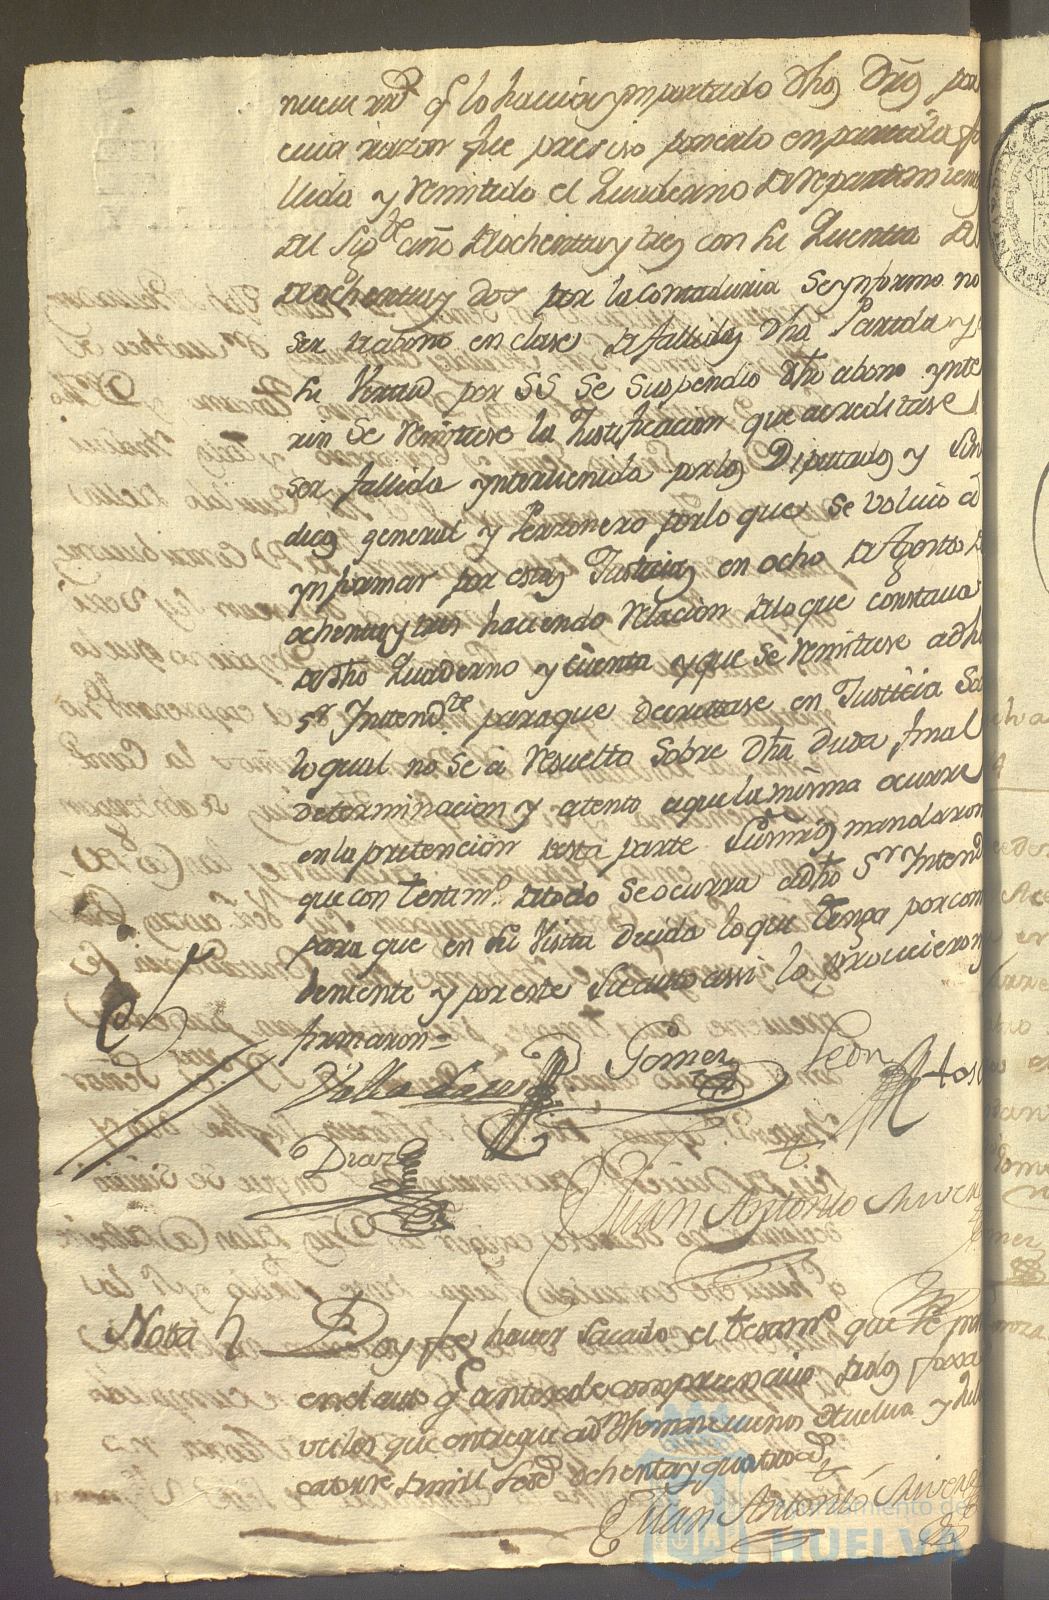 nueve mrs. q lo havian ymportado dhos Drõs por
cuia razon fue preciso ponerlo en partida fa
llida y remitido el Quaderno de repartimien
del sigte. año de ochenta y tres con su Quenta de
de ochenta y dos por la contaduria se ynformo no
ser de abono en clase de fallidas dha Partida y
su Virtud por SS se suspendio dho abono ynte
rin se remitiese la Justificacion que acreditase
ser fallida yntervenida por los Diputados y Sin
dicos general y Perzonero por lo que se volvio a
ynformar por estas Justicias en ocho de Agosto de
ochenta y tres haciendo relacion de lo que constava
de dho Quaderno y cuenta y que se remitiese a dh
Sr. Intendte. para que decretase en Justicia So
lo qual no se a resuelto sobre dha duda final
determinacion y atento a que la misma ocurre
en la pretencion desta parte sus mrds mandaron
que con testimo. de todo se ocurra a dho Sr Intend
para que en su Vista decida lo que tenga por com
beniente y por este su auto assi lo proveieron
firmaron=
Gomez Leon
Diaz
Juan Antonio
Nota Doy fe haver sacado el testimo. que se
en el auto q antecede comprensivo de dos foxas
utiles que entregue a Huelva y Jul
catorze de mill setes. ochenta y quatro as
Juan Antonio
Ayuntamiento de
HUELVA